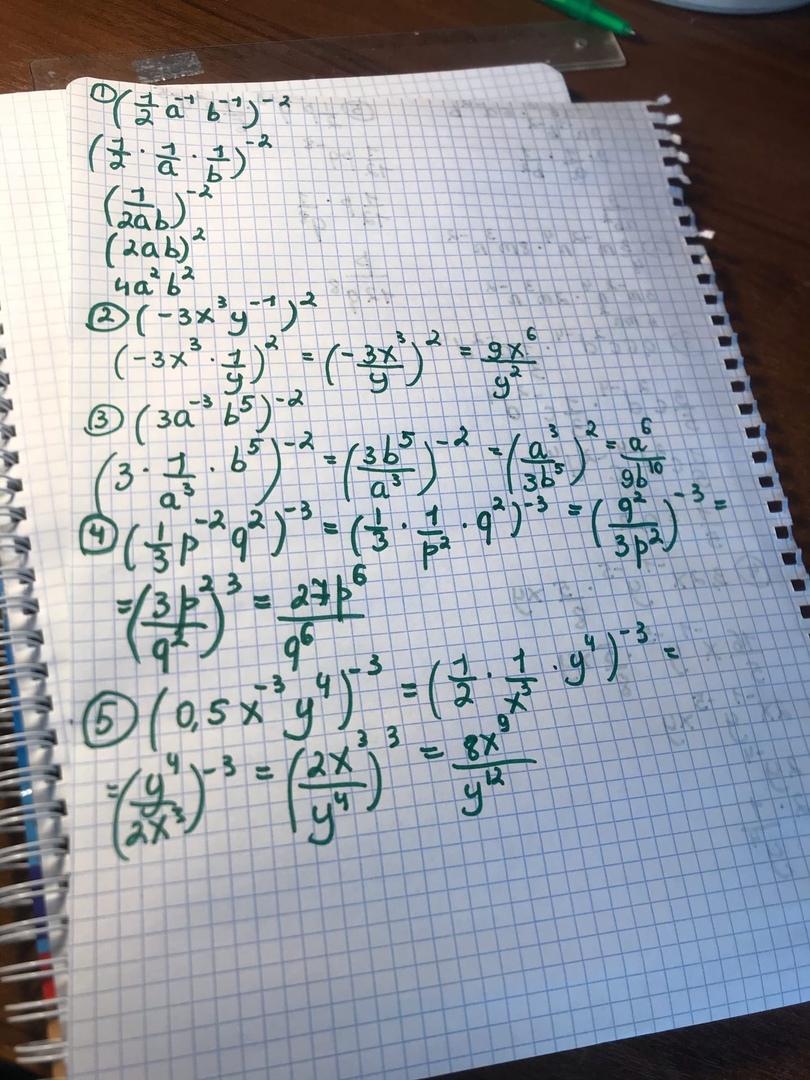 ① (1/2 a⁻¹ b⁻¹)⁻²
(1/2 · 1/a · 1/b)⁻²
(1/2ab)⁻²
(2ab)²
4a²b²
② (-3x³y⁻¹)²
(-3x³ · 1/y)² = (-3x³/y)² = 9x⁶/y²
③ (3a⁻³ b⁵)⁻²
(3 · 1/a³ · b⁵)⁻² = (3b⁵/a³)⁻² = (a³/3b⁵)² = a⁶/9b¹⁰
④ (1/3 p⁻² q²)⁻³ = (1/3 · 1/p² · q²)⁻³ = (q²/3p²)⁻³ =
= (3p²/q²)³ = 27p⁶/q⁶
⑤ (0,5x⁻³ y⁴)⁻³ = (1/2 · 1/x³ · y⁴)⁻³ =
= (y⁴/2x³)⁻³ = (2x³/y⁴)³ = 8x⁹/y¹²